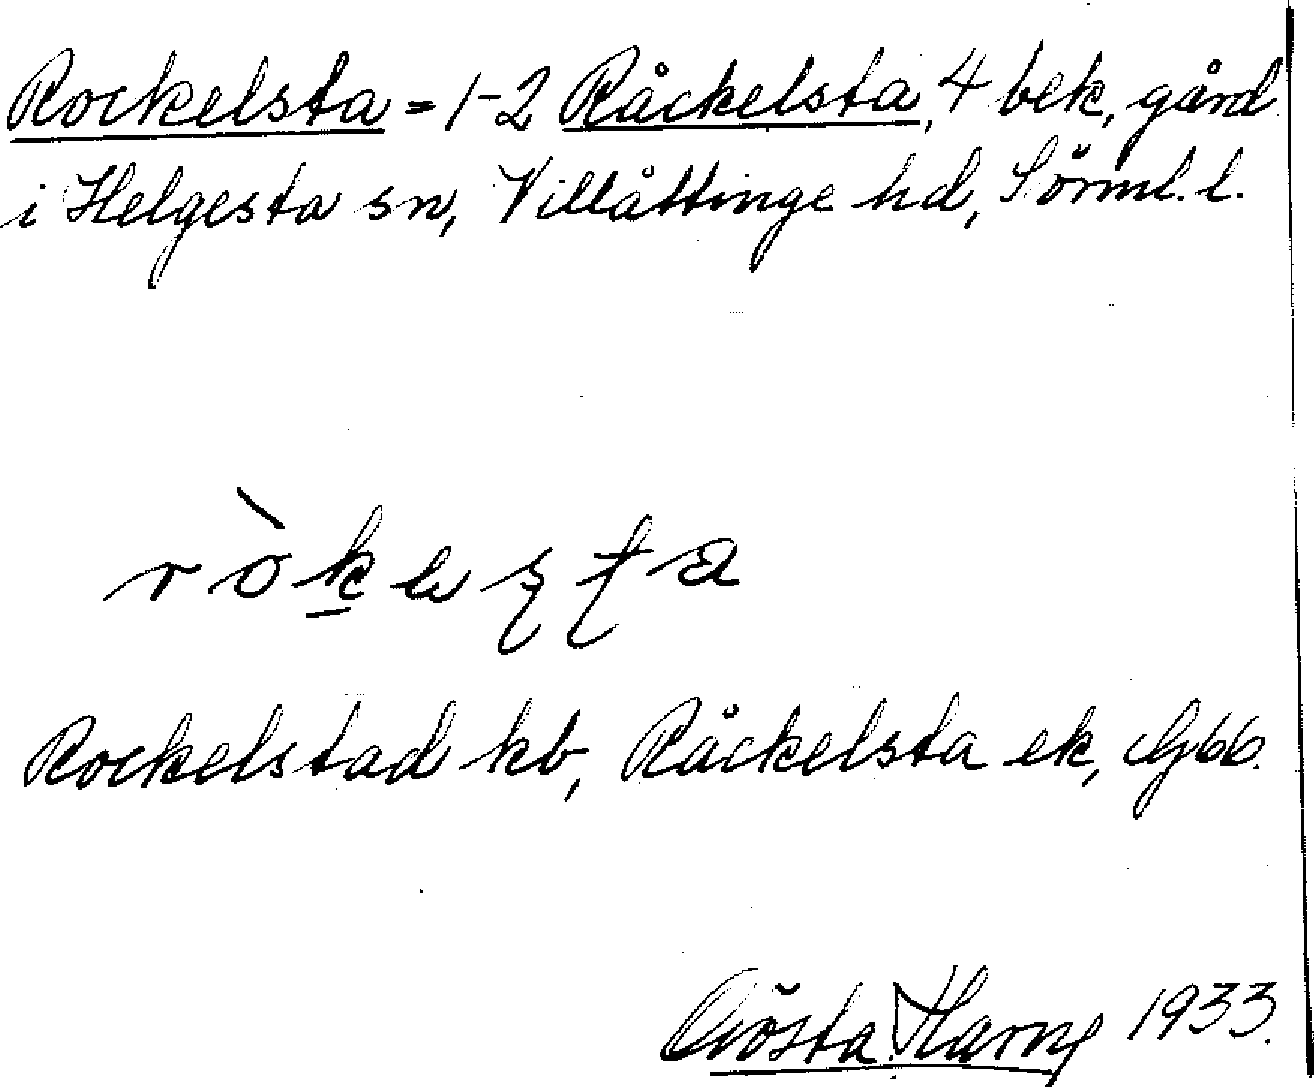 Rockelsta = 1-2 Råckelsta, 4 bek, gård
i Helgesta sn, Villåttinge hd, Sörml. l.
Rockelstad kb, Råckelsta ek, Gbb.
Gösta Harn 1933.